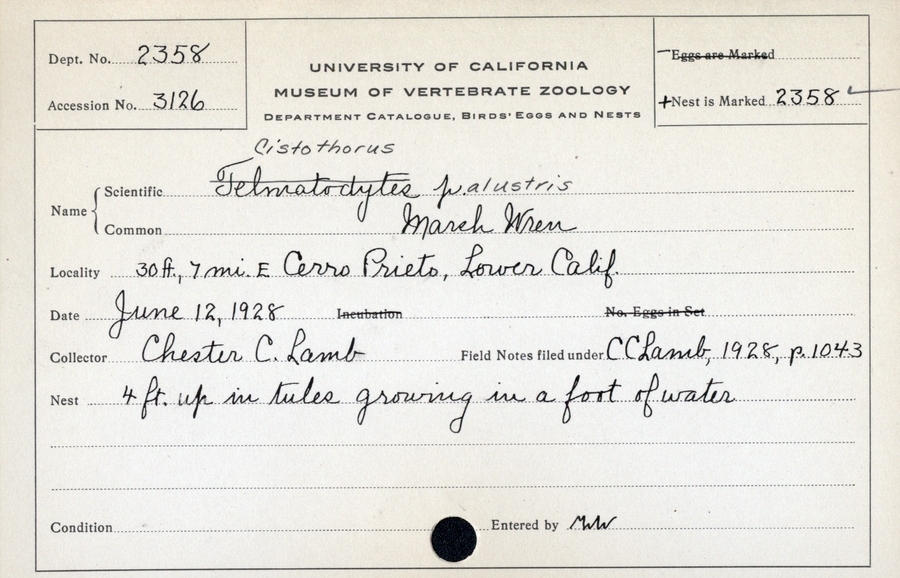 Dept. No. 2358
Accession No. 3126
UNIVERSITY OF CALIFORNIA
MUSEUM OF VERTEBRATE ZOOLOGY
DEPARTMENT CATALOGUE, BIRDS' EGGS AND NESTS
Eggs are Marked
+Nest is Marked 2358
Cistothorus
Name Scientific Telmatodytes palustris
Common Marsh Wren
Locality 30 ft., 7 mi. E Cerro Prieto, Lower Calif.
Date June 12, 1928 Incubation No. Eggs in Set
Collector Chester C. Lamb Field Notes filed under CCLamb, 1928, p.1043
Nest 4 ft. up in tules growing in a foot of water
Condition Entered by